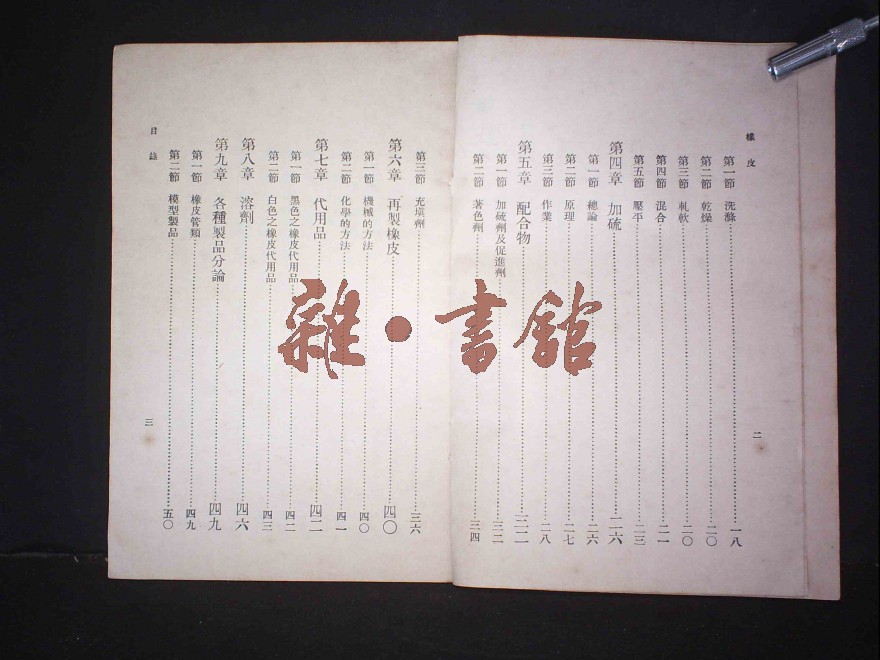 橡皮
第一節 洗滌 一八
第二節 乾燥 二〇
第三節 軋軟 二〇
第四節 混合 二一
第五節 壓平 二三
第四章 加硫 二六
第一節 總論 二六
第二節 原理 二七
第三節 作業 二八
第五章 配合物 三二
第一節 加硫劑及促進劑 三二
第二節 著色劑 三四
二
第三節 充填劑 三六
第六章 再製橡皮 四〇
第一節 機械的方法 四〇
第二節 化學的方法 四一
第七章 代用品 四二
第一節 黑色之橡皮代用品 四二
第二節 白色之橡皮代用品 四三
第八章 溶劑 四六
第九章 各種製品分論 四九
第一節 橡皮管類 四九
第二節 模型製品 五〇
目錄
三
雜·書館